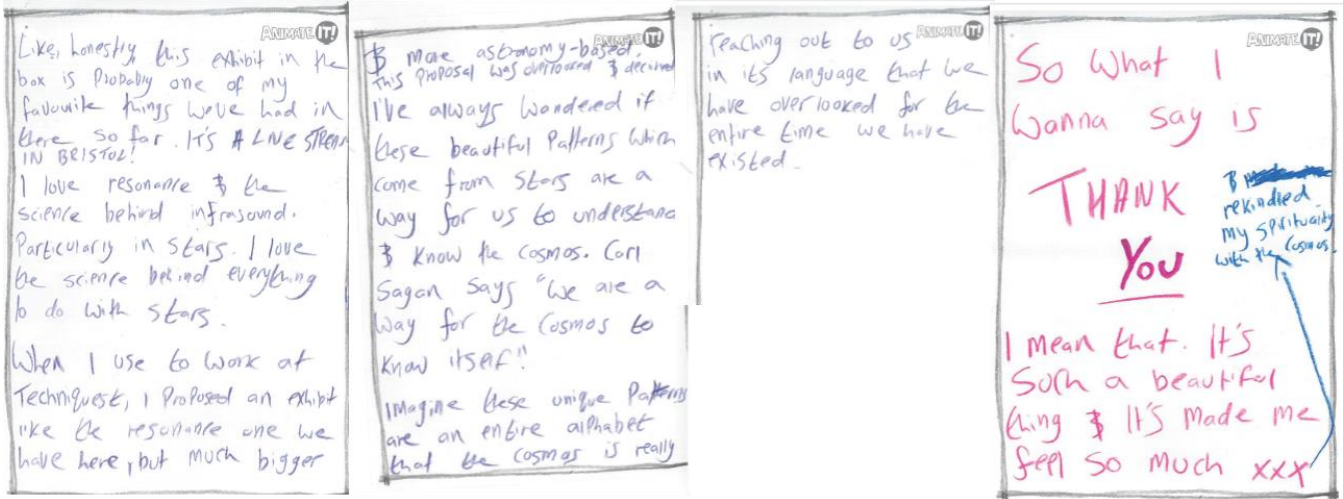 ANIMATE IT!
Like, honestly this exhibit in the
box is Probably one of my
favourite things we've had in
there so far. IT'S A LIVE STREAM
IN BRISTOL!
I love resonance & the
science behind infrasound.
Particularly in stars. I love
the science behind everything
to do with stars.
When I use to work at
Techniquest, I Proposed an exhibit
like the resonance one we
have here, but much bigger
ANIMATE IT!
& more astronomy-based.
This Proposal was overlooked & declined
I've always wondered if
these beautiful Patterns which
come from stars are a
way for us to understand
& know the cosmos. Carl
Sagan says "we are a
way for the cosmos to
know itself"!
Imagine these unique Patterns
are an entire alphabet
that the cosmos is really
ANIMATE IT!
reaching out to us
in its language that we
have overlooked for the
entire time we have
existed.
ANIMATE IT!
So What I
Wanna say is
THANK
YOU
I mean that. It's
Such a beautiful
thing & It's made me
feel so much xxx
&
rekindled
my spirituality
with the cosmos.